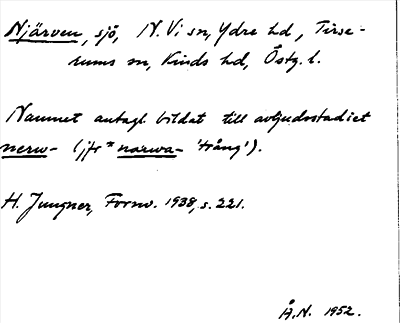 Njärven, sjö, N. Vi sn, Ydre hd, Tirse-
rums sn, Kinds hd, Östg. l.
Namnet antagl. bildat till avljudsstadiet
nerw- (jfr *narwa- 'trång').
H. Jungner, Fornv. 1938, s. 221.
Å.N. 1952.